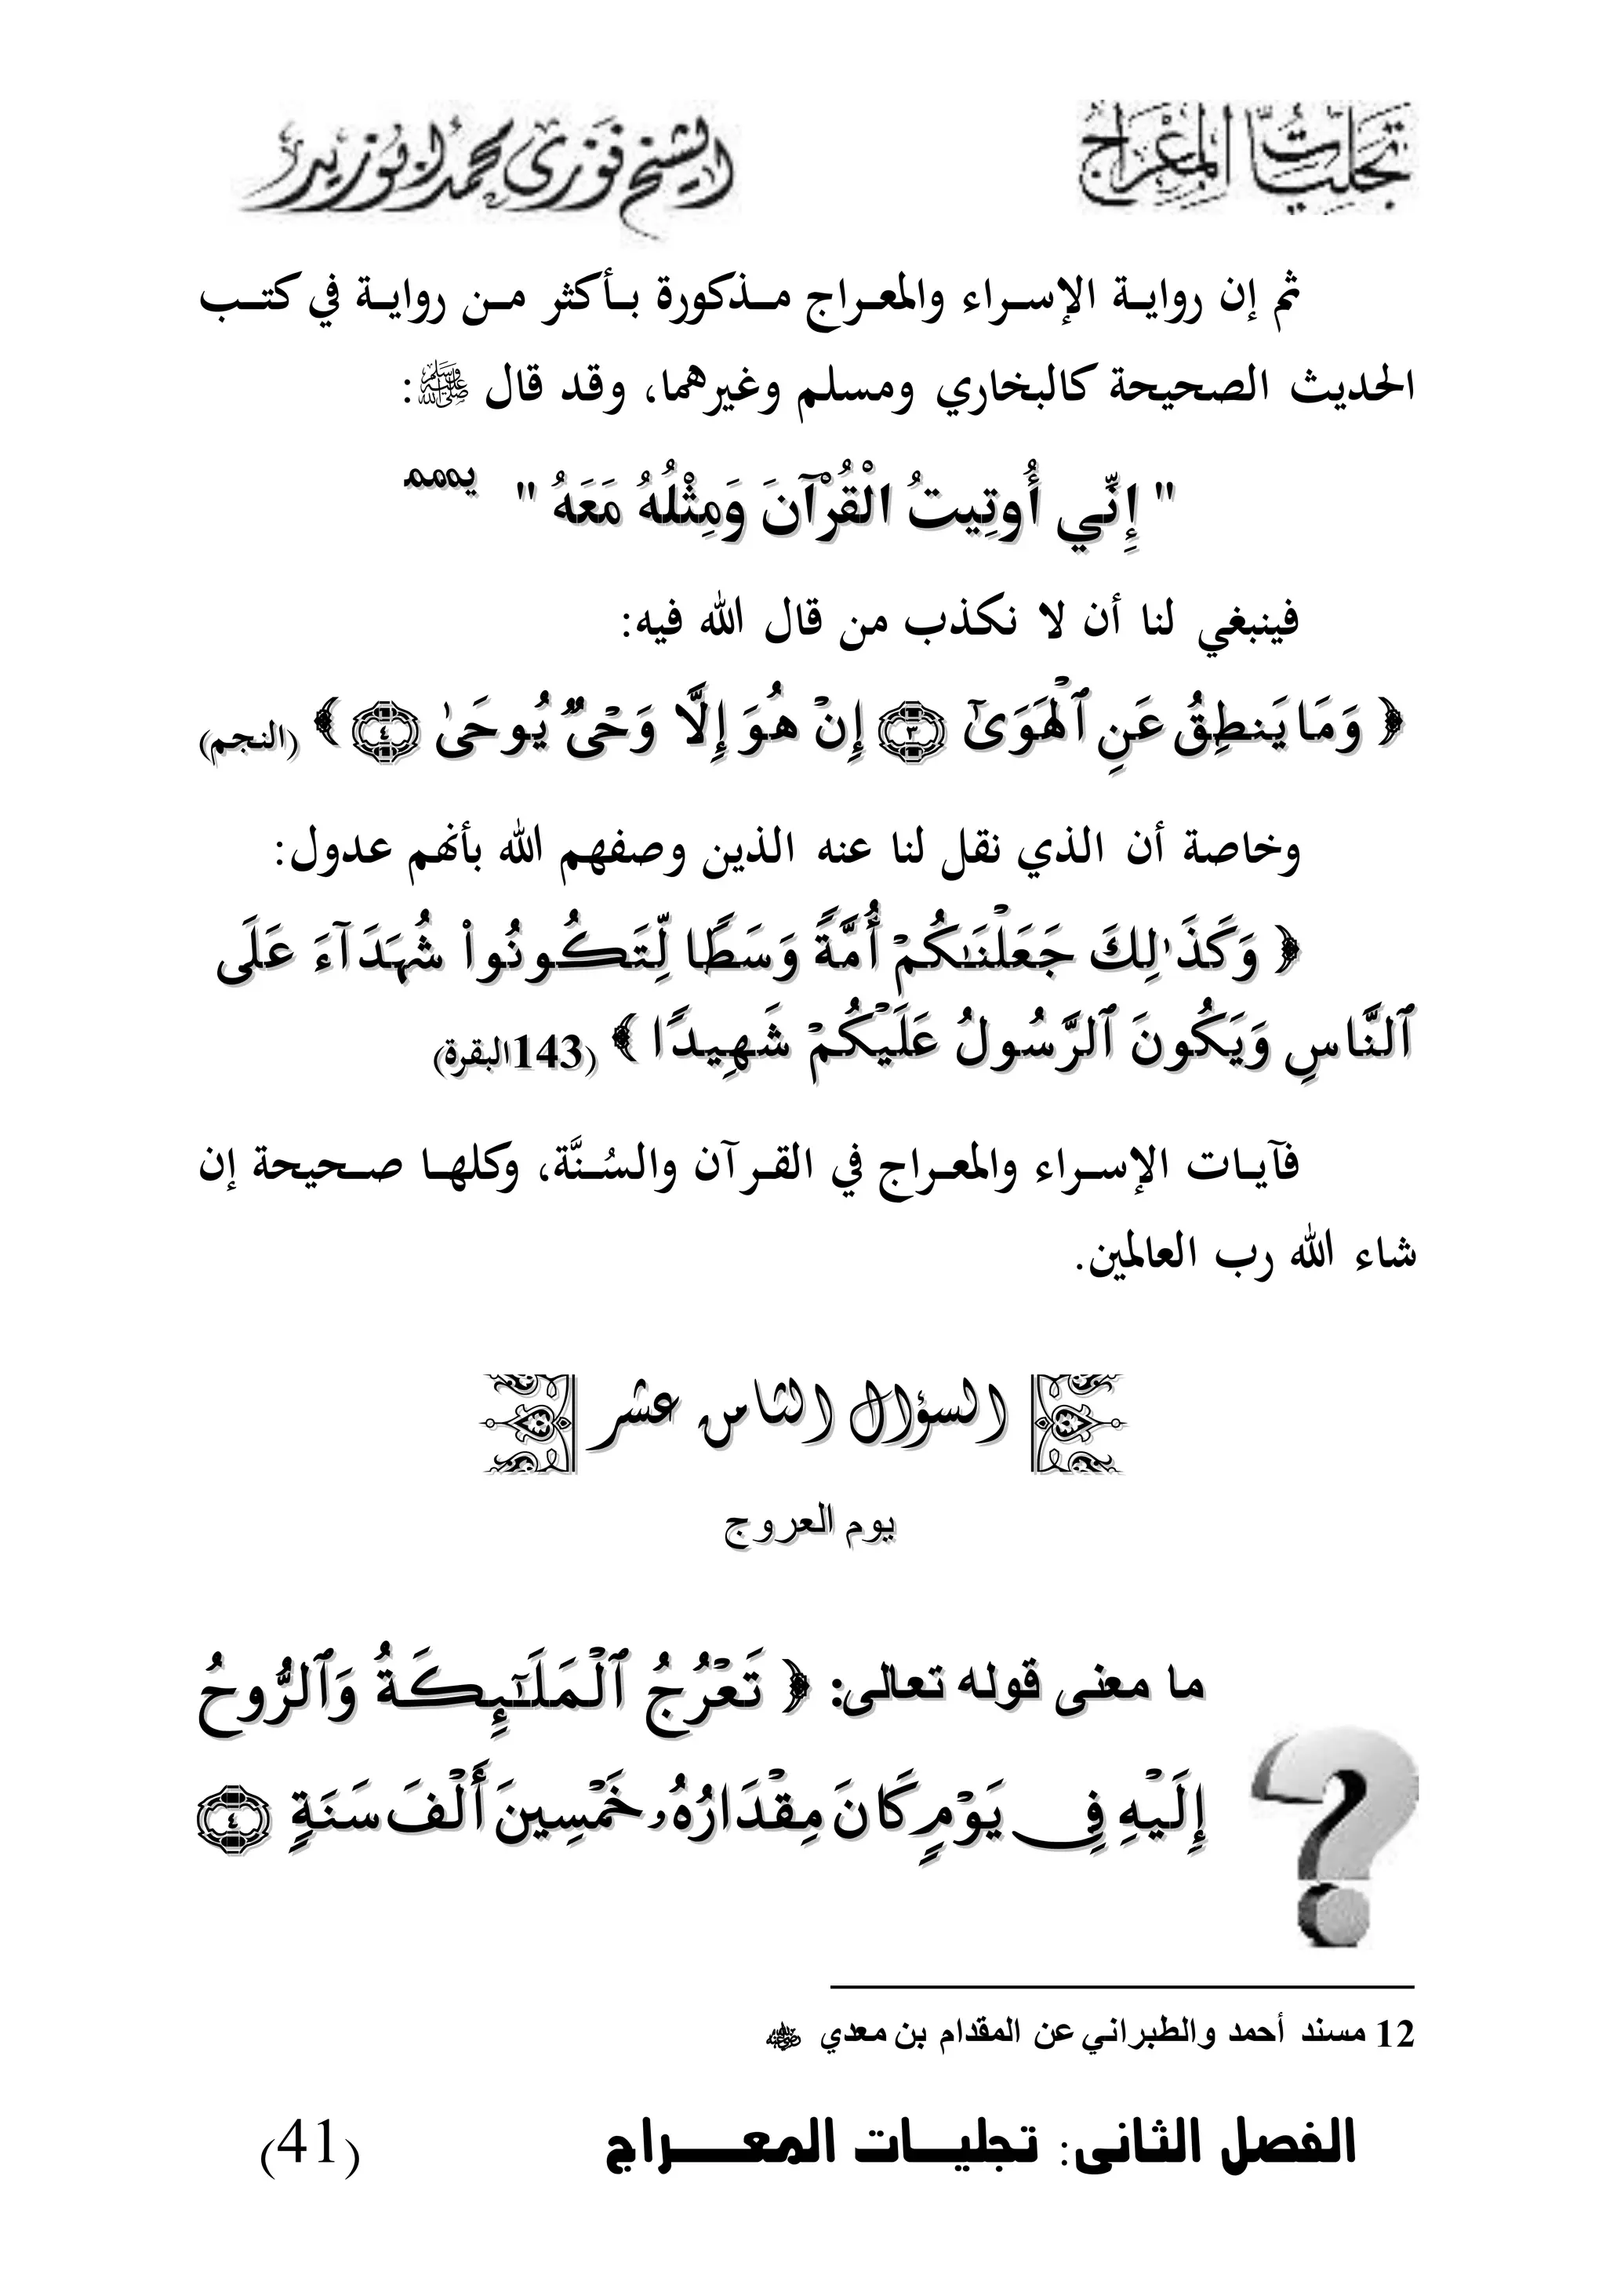 تجليات المعراج الشيخ فوزى محمد أبوزيد
ثم إن رواية الإسراء والمعراج مذكورة بأكثر من رواية في كتب
الحديث الصحيحة كالبخاري ومسلم وغيرهما، وقد قال ﷺ:
" إِنِّي أُوتِيتُ الْقُرْآنَ وَمِثْلُهُ مَعَهُ "
فينبغي لنا أن لا نكذب من قال الله فيه:
﴿ وَمَا يَنطِقُ عَنِ ٱلْهَوَىٰٓ ۝٣ إِنْ هُوَ إِلَّا وَحْىٌ يُوحَىٰ ۝٤ ﴾ (النجم)
وخاصة أن الذي نقل لنا عنه الذين وصفهم الله بأنهم عدول:
﴿ وَكَذَٰلِكَ جَعَلْنَـٰكُمْ أُمَّةً وَسَطًا لِّتَكُونُوا۟ شُهَدَآءَ عَلَى
ٱلنَّاسِ وَيَكُونَ ٱلرَّسُولُ عَلَيْكُمْ شَهِيدًا ﴾ (143البقرة)
فآيات الإسراء والمعراج في القرآن والسُنَّة، وكلها صحيحة إن
شاء الله رب العالمين.
السؤال الثامن عشر
يوم العروج
ما معنى قوله تعالى: ﴿ تَعْرُجُ ٱلْمَلَـٰٓئِكَةُ وَٱلرُّوحُ
إِلَيْهِ فِى يَوْمٍ كَانَ مِقْدَارُهُۥ خَمْسِينَ أَلْفَ سَنَةٍ ۝٤
12 مسند أحمد والطبراني عن المقدام بن معدي ؓ
الفصل الثانى: تجليات المعراج (41)